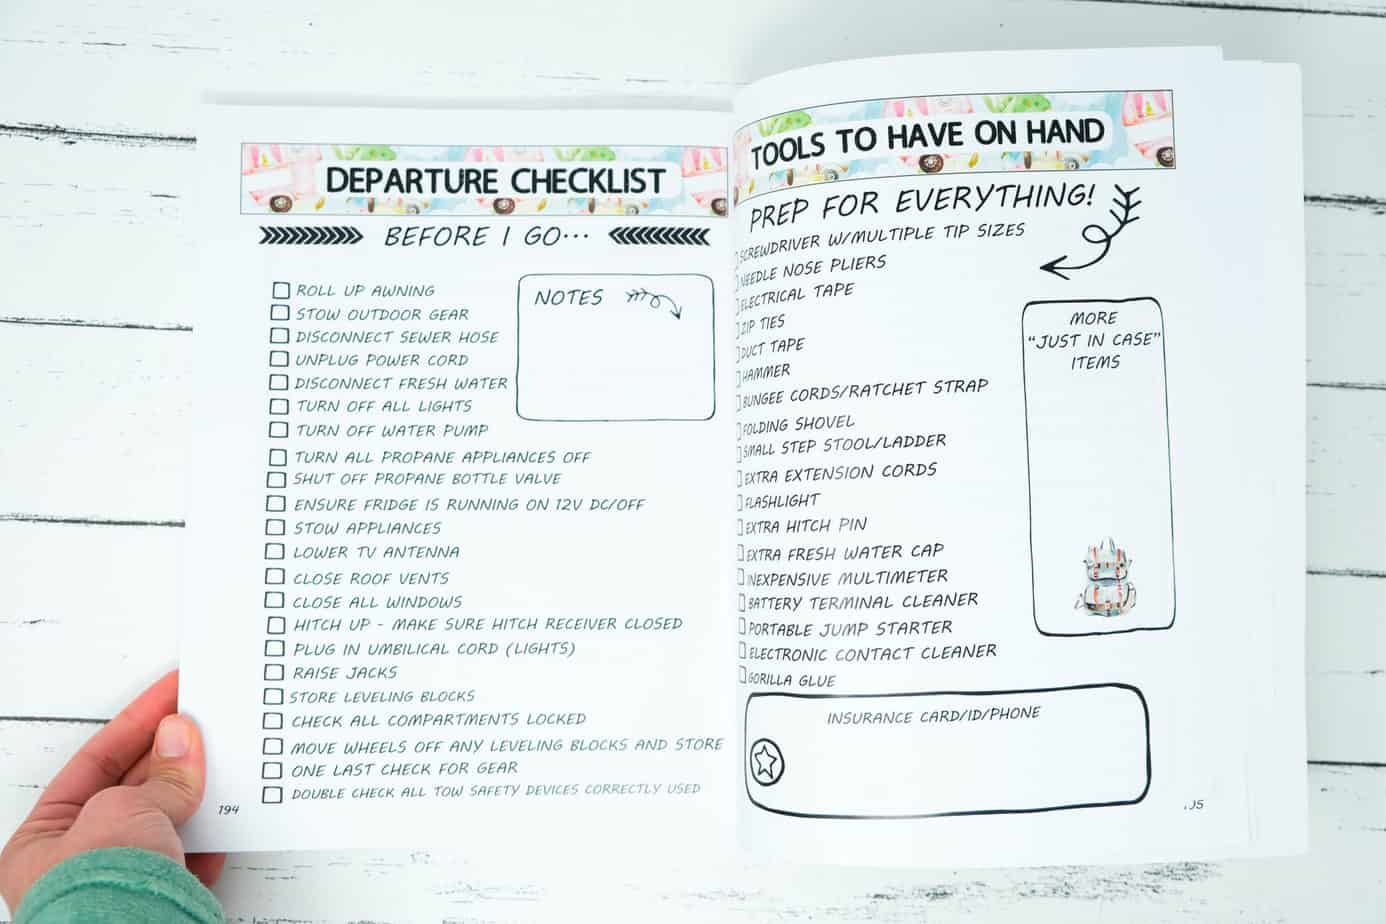 DEPARTURE CHECKLIST
BEFORE I GO...
ROLL UP AWNING
STOW OUTDOOR GEAR
DISCONNECT SEWER HOSE
UNPLUG POWER CORD
DISCONNECT FRESH WATER
TURN OFF ALL LIGHTS
TURN OFF WATER PUMP
TURN ALL PROPANE APPLIANCES OFF
SHUT OFF PROPANE BOTTLE VALVE
ENSURE FRIDGE IS RUNNING ON 12V DC/OFF
STOW APPLIANCES
LOWER TV ANTENNA
CLOSE ROOF VENTS
CLOSE ALL WINDOWS
HITCH UP - MAKE SURE HITCH RECEIVER CLOSED
PLUG IN UMBILICAL CORD (LIGHTS)
RAISE JACKS
STORE LEVELING BLOCKS
CHECK ALL COMPARTMENTS LOCKED
MOVE WHEELS OFF ANY LEVELING BLOCKS AND STORE
ONE LAST CHECK FOR GEAR
DOUBLE CHECK ALL TOW SAFETY DEVICES CORRECTLY USED
NOTES
194
TOOLS TO HAVE ON HAND
PREP FOR EVERYTHING!
SCREWDRIVER W/MULTIPLE TIP SIZES
NEEDLE NOSE PLIERS
ELECTRICAL TAPE
ZIP TIES
DUCT TAPE
HAMMER
BUNGEE CORDS/RATCHET STRAP
FOLDING SHOVEL
SMALL STEP STOOL/LADDER
EXTRA EXTENSION CORDS
FLASHLIGHT
EXTRA HITCH PIN
EXTRA FRESH WATER CAP
INEXPENSIVE MULTIMETER
BATTERY TERMINAL CLEANER
PORTABLE JUMP STARTER
ELECTRONIC CONTACT CLEANER
GORILLA GLUE
MORE
"JUST IN CASE"
ITEMS
INSURANCE CARD/ID/PHONE